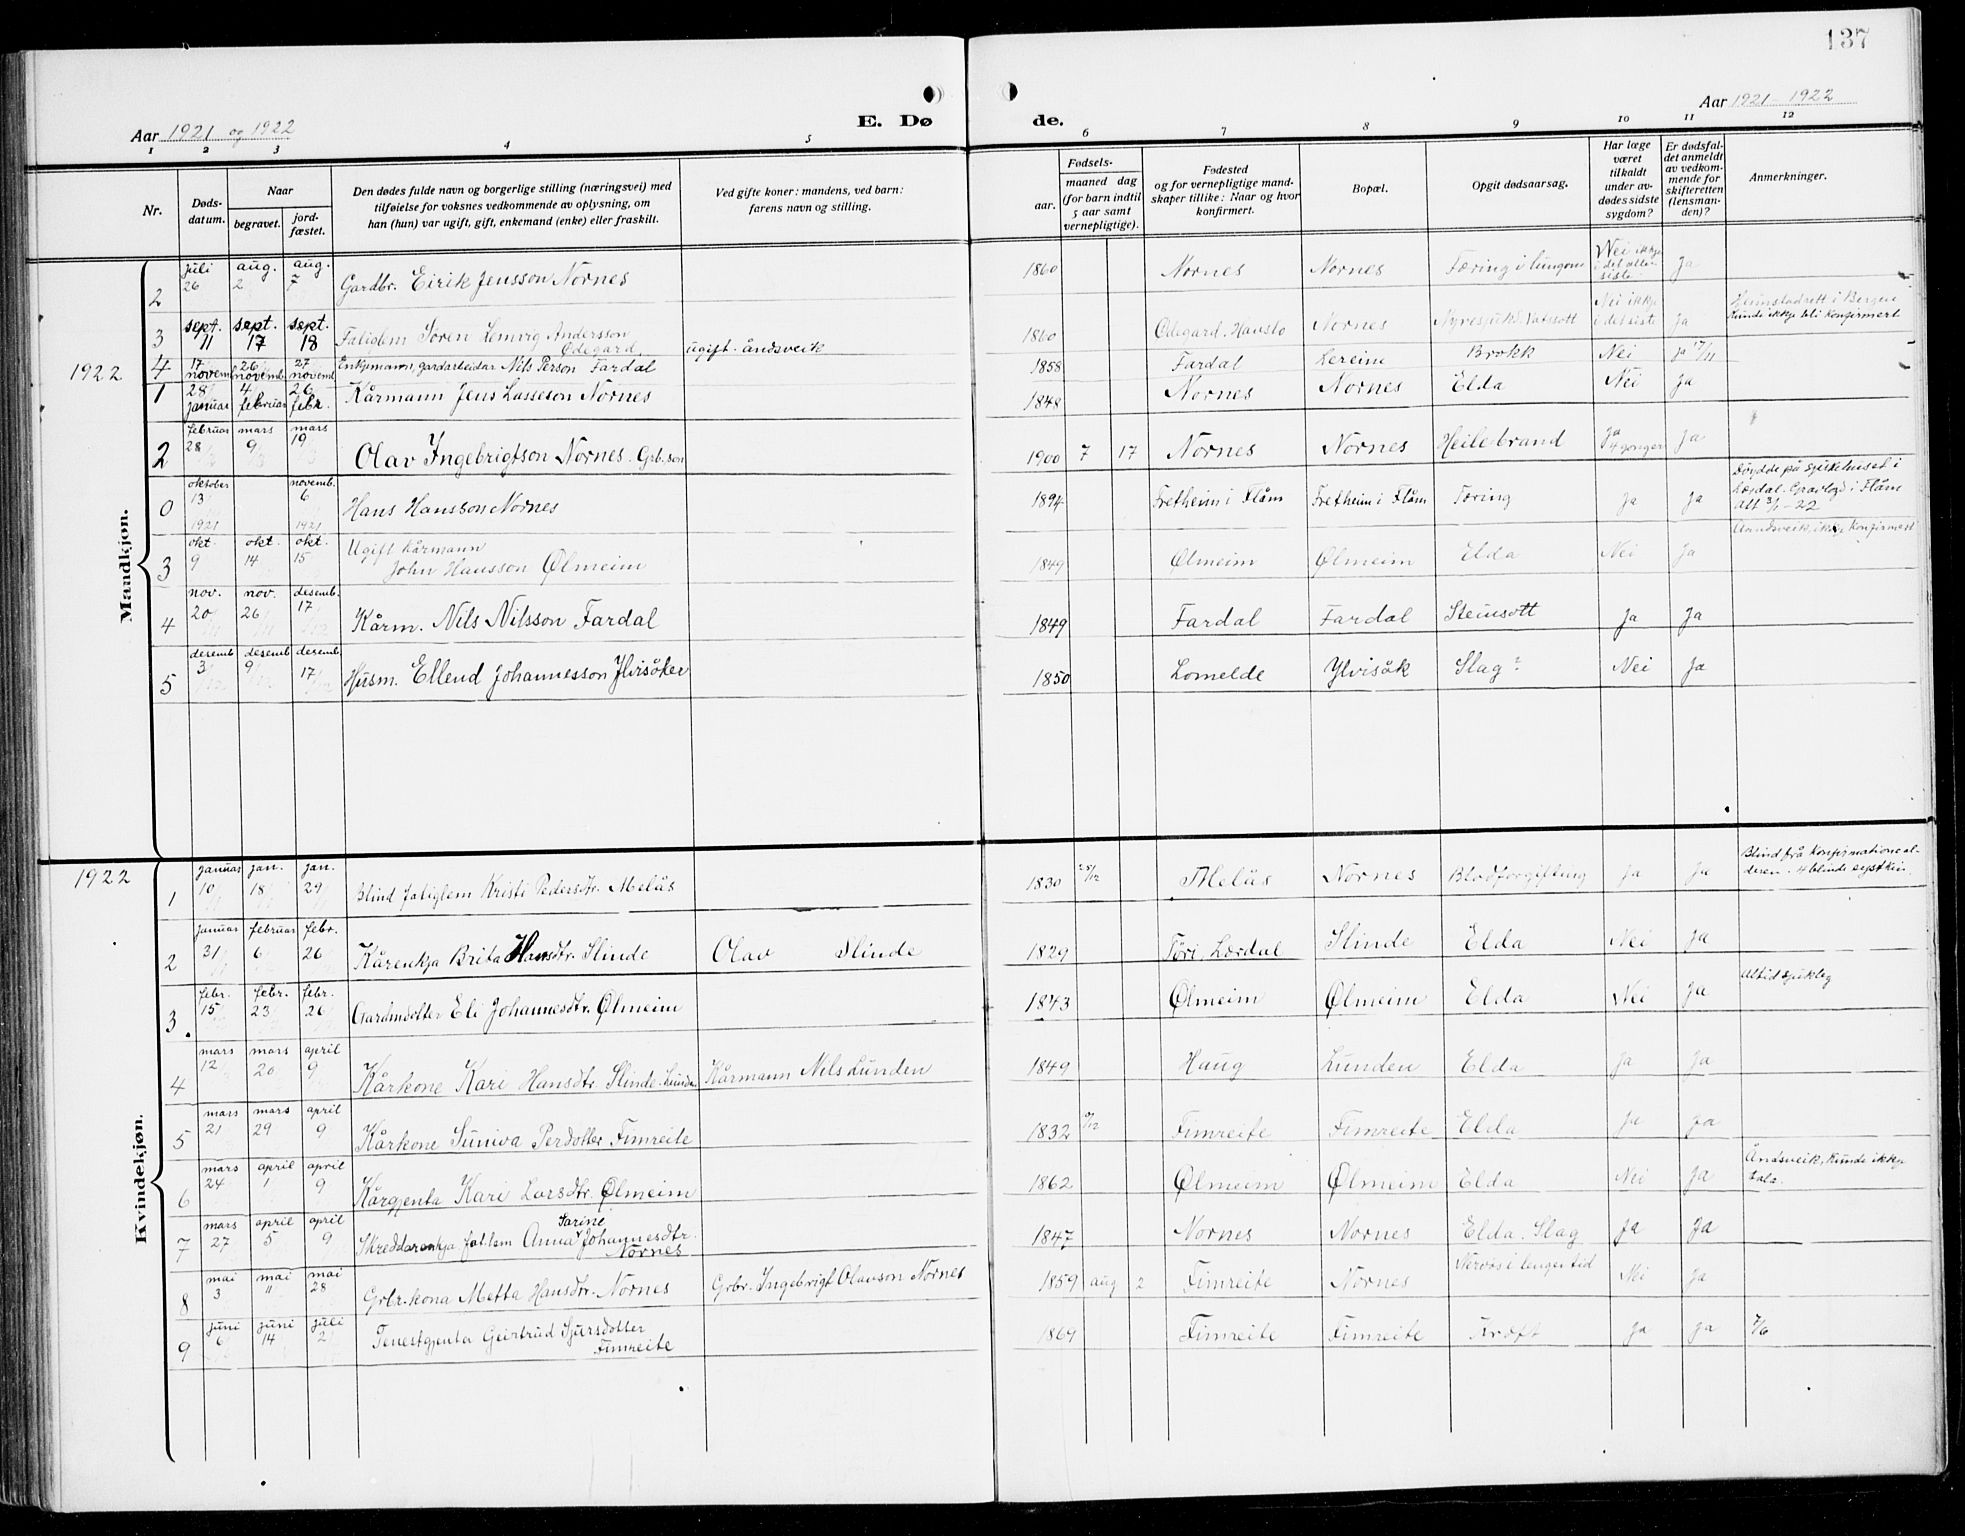 137
Aar 1921 og 1922
E. Dø
de.
Aar 1921 1922
1 2 3 4 5 6 7 8 9 10 11 12
Nr.
Døds-
datum.
Naar
begravet.
jord-
fæstet.
Den dødes fulde navn og borgerlige stilling (næringsvei) med
tilføielse for voksnes vedkommende av oplysning, om
han (hun) var ugift, gift, enkemand (enke) eller fraskilt.
Ved gifte koner: mandens, ved barn:
farens navn og stilling.
Fødsels-
aar.
maaned dag
(for barn indtil
5 aar samt
vernepligtige).
Fødested
og for vernepligtige mand-
skaper tillike: Naar og hvor
konfirmert.
Bopæl.
Opgit dødsaarsag.
Har læge
været
tilkaldt
under av-
dødes sidste
sygdom?
Er dødsfal-
det anmeldt
av vedkom-
mende for
skifteretten
(lensman-
den)?
Anmerkninger.
Maandkjøn.
2 juli 26 aug. 2 aug. 7 Gardbr. Eirik Jensson Nornes 1860 Nornes Nornes Tæring i lungone Nei ikkje i det aller siste Ja
3 sept. 11 sept. 17 sept. 18 Fatiglem Søren Lemvig Andersson Ødegard ugift - åndsveik 1860 Ødegard. Hauslo Nornes Nyresjukd. Vatssott Nei ikkje i det siste Ja Heimstadrett i Bergen Kunde ikkje bli konfirmert
4 17 novemb 26 novemb 27 novemb Enkjemann, gardarbeidar Nils Person Fardal 1858 Fardal Lereim Brokk Nei ja 17/11
1922
1 28 januar 4 februar 26 febr. Kårmann Jens Lasseson Nornes 1848 Nornes Nornes Elda Nei Ja
2 februar 28 mars 9 mars 19 Olav Ingebrigtson Nornes. Grb. son 1900 7 17 Nornes Nornes Heilebrand Ja 4 gonger Ja
0 oktober 13 1921 novemb. 6 1921 Hans Hansson Nornes 1894 Fretheim i Flåm Fretheim i Flåm Tæring Ja Ja Døydde på sjukehuset i Lærdal. Gravlagd i Flåm Att 3/1 - 22
3 okt. 9 okt. 14 okt. 15 Ugift kårmann John Hansson Ølmeim 1849 Ølmeim Ølmeim Elda Nei Ja Aandsveik, ikkje konfirmert
4 nov. 20 nov. 26 desemb. 17 Kårm. Nils Nilsson Fardal 1849 Fardal Fardal Steinsott Ja Ja
5 desemb 3 desemb 9 desemb 17 Husm. Ellend Johannesson Ylvisåker 1850 Lomelde Ylvisåk Slag? Nei Ja
Kvindekjøn.
1922
1 januar 10 jan. 18 jan. 29 Blind fatiglem Kristi Pedersdtr. Melås 1830 25/12 Melås Nornes Blodforgifting Ja Ja Blind frå konfirmational- deren. 4 blinde systkin.
2 januar 31 februar 6 febr. 26 Kårenkja Brita Hansdtr. Slinde Olav Slinde 1829 Tøri, Lærdal Slinde Elda Nei Ja
3. febr. 15 febr. 23 febr. 26 Gardmdotter Eli Johannesdtr. Ølmeim 1843 Ølmeim Ølmeim Elda Nei Ja Altid sjukleg
4 mars 12 mars 20 april 9 Kårkone Kari Hansdtr. Slinde-Lunden Kårmann Nils Lunden 1849 Haug Lunden Elda Ja Ja
5 mars 21 mars 29 april 9 Kårkone Suniva Perdotter Fimreite 1832 Fimreite Fimreite Elda Ja Ja
6 mars 24 april 1 april 9 Kårgjenta Kari Larsdtr. Ølmeim 1862 Ølmeim Ølmeim Elda Nei Ja Åndsveik, kunde ikkje tala.
7 mars 27 april 5 april 9 Skreddarenkja fat.lem Anna Sarine Johannesdtr. Nornes 1847 Nornes Nornes Elda. Slag Ja Ja
8 mai 3 mai 11 mai 28 Grbr.kona Metta Hansdtr. Nornes Grbr. Ingebrigt Olavson Nornes 1859 aug 2 Fimreite Nornes Nervøs i lenger tid Nei Ja
9 juni 6 juni 14 juli 2 Tenestgjenta Geirtrud Sjursdotter Fimreite 1869 Fimreite Fimreite Kræft Ja Ja 7/6